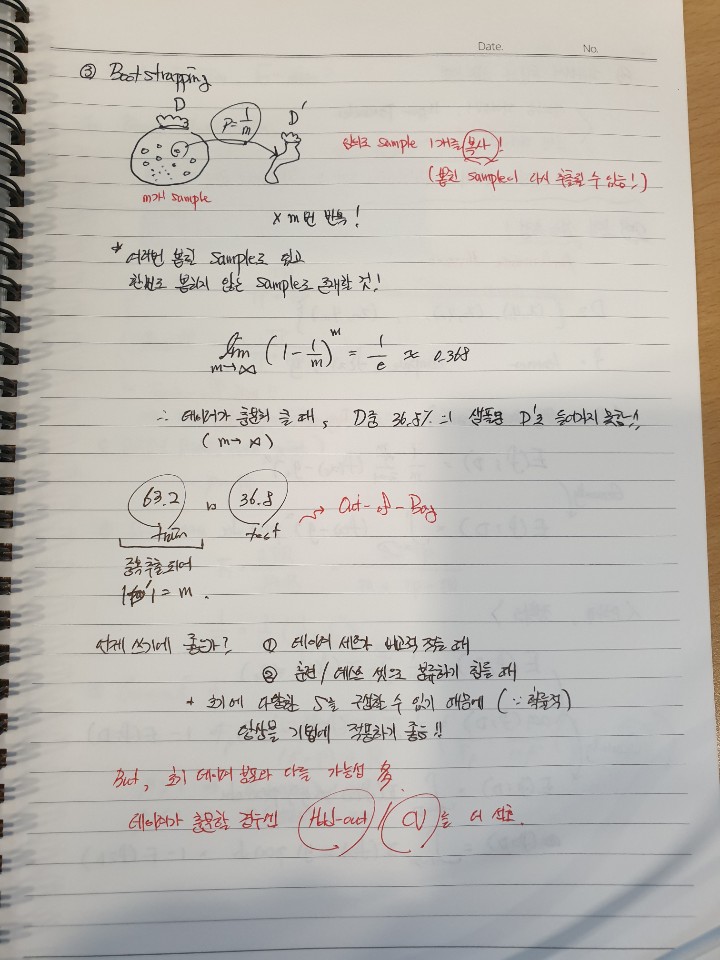 Date. No.
③ Bootstrapping
D P=1/m D'
임의로 sample 1개를 복사!
(뽑힌 sample이 다시 추출될 수 있음!)
m개 sample
x m번 반복!
* 여러번 뽑힌 sample도 있고
한번도 뽑히지 않는 sample도 존재할 것!
lim m→∞ (1 - 1/m)^m = 1/e ≈ 0.368
∴ 데이터가 충분히 클 때, D중 36.8%의 샘플은 D'로 들어가지 못함!!
(m→∞)
63.2 vs 36.8 → Out-of-Bag
train test
중복추출되어
|D'| = m.
언제 쓰기에 좋은가? ① 데이터 세트가 비교적 적을 때
② 훈련/테스트 셋으로 분류하기 힘들 때
* 초기에 다양한 S을 구성할 수 있기 때문에 (∵ 확률적)
앙상블 기법에 적용하기 좋음!!
But, 초기 데이터 분포와 다를 가능성 多.
데이터가 충분할 경우엔 Hold-out / CV를 더 선호.